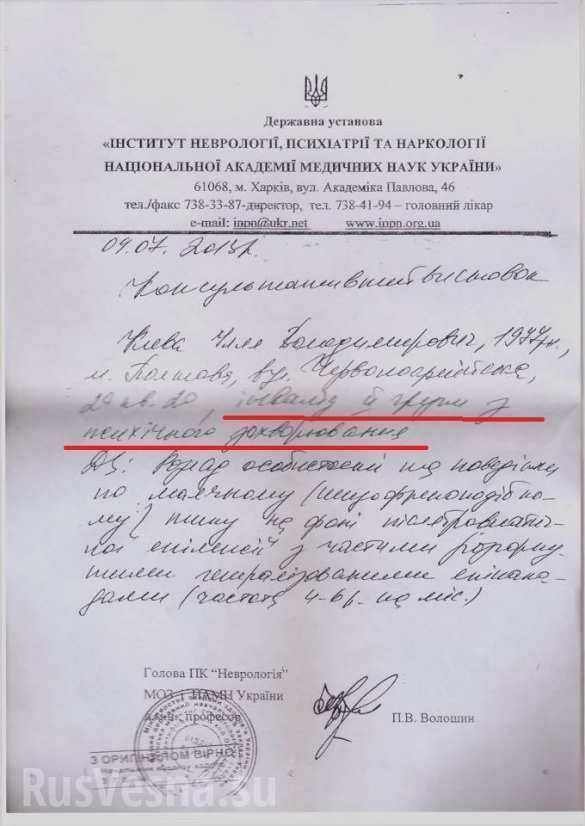 Державна установа
«ІНСТИТУТ НЕВРОЛОГІЇ, ПСИХІАТРІЇ ТА НАРКОЛОГІЇ
НАЦІОНАЛЬНОЇ АКАДЕМІЇ МЕДИЧНИХ НАУК УКРАЇНИ»
61068, м. Харків, вул. Академіка Павлова, 46
тел./факс 738-33-87-директор, тел. 738-41-94 – головний лікар
e-mail: inpn@ukr.net www.inpn.org.ua
09.07.2013р.
Консультативний висновок
Володимирович, 1977
м. Полтава, вул. Червоноармійська,
інвалід ІІ групи з
психічного захворювання
Ds: Розлад особистості та поведінки
по маячному (шизофреноподібно-
му) типу на фоні післятравматич-
ної епілепсії з частими
генералізованими епінапа-
дами (частота 4-6 р. на міс.)
Голова ПК “Неврологія”
МОЗ і НАМН України
д.м.н. професор
П.В. Волошин
З ОРИГІНАЛОМ ВІРНО
RusVesna.su